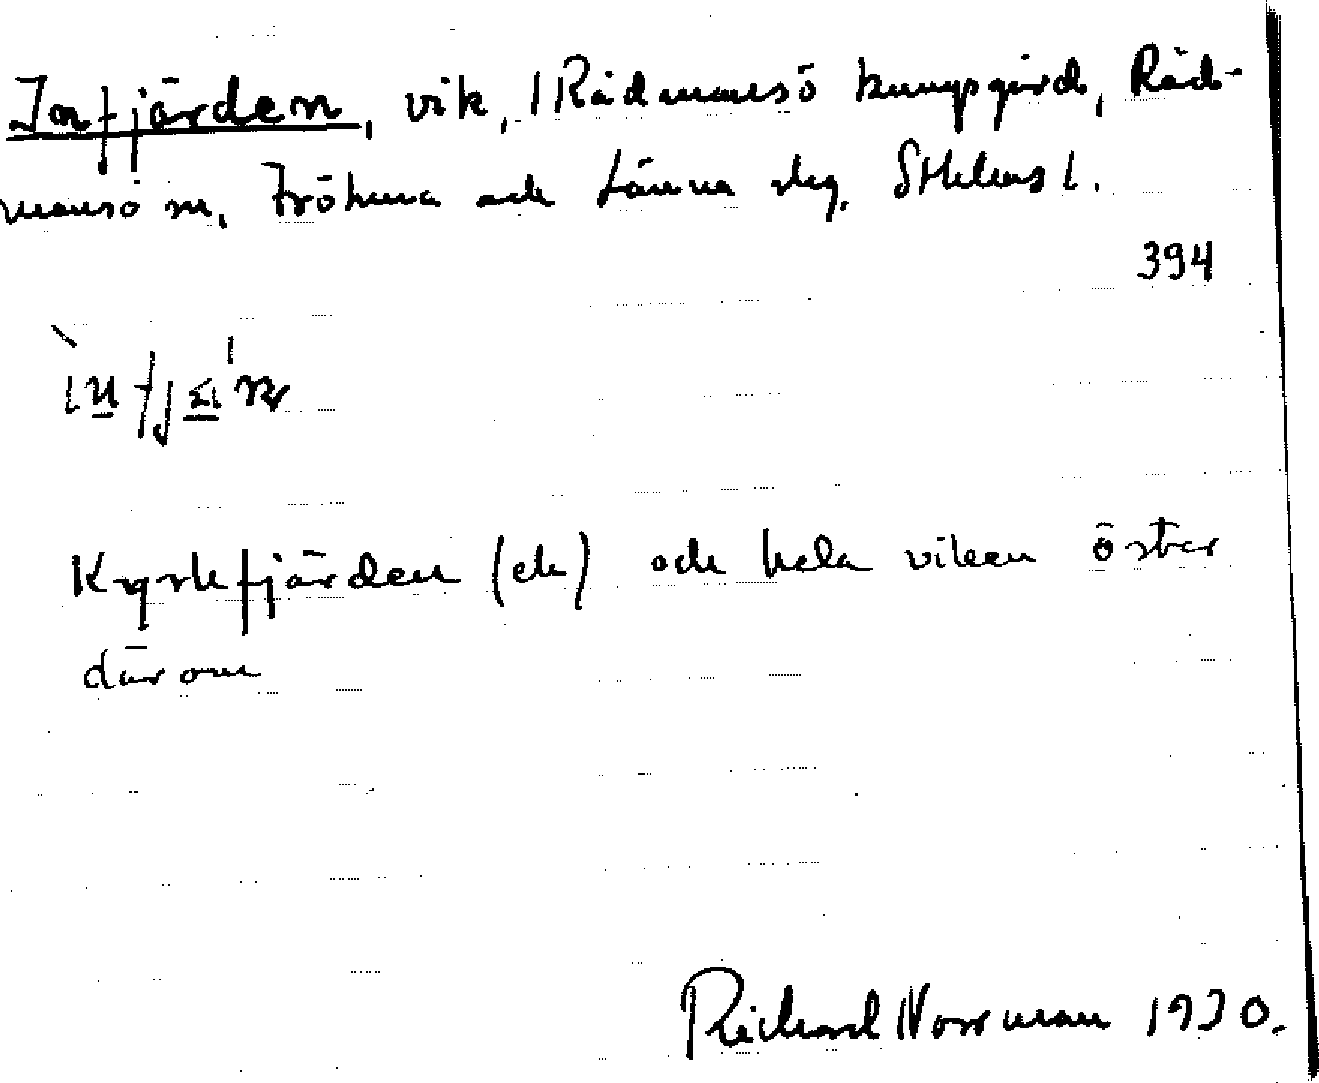 Infjärden, vik, Rådmansö kungsgård, Råd-
mansö sn, Frötuna och Länna skg. Sthlms l.
394
Kyrkfjärden (ek) och hela viken öster
därom
Richard Norrman 1930.